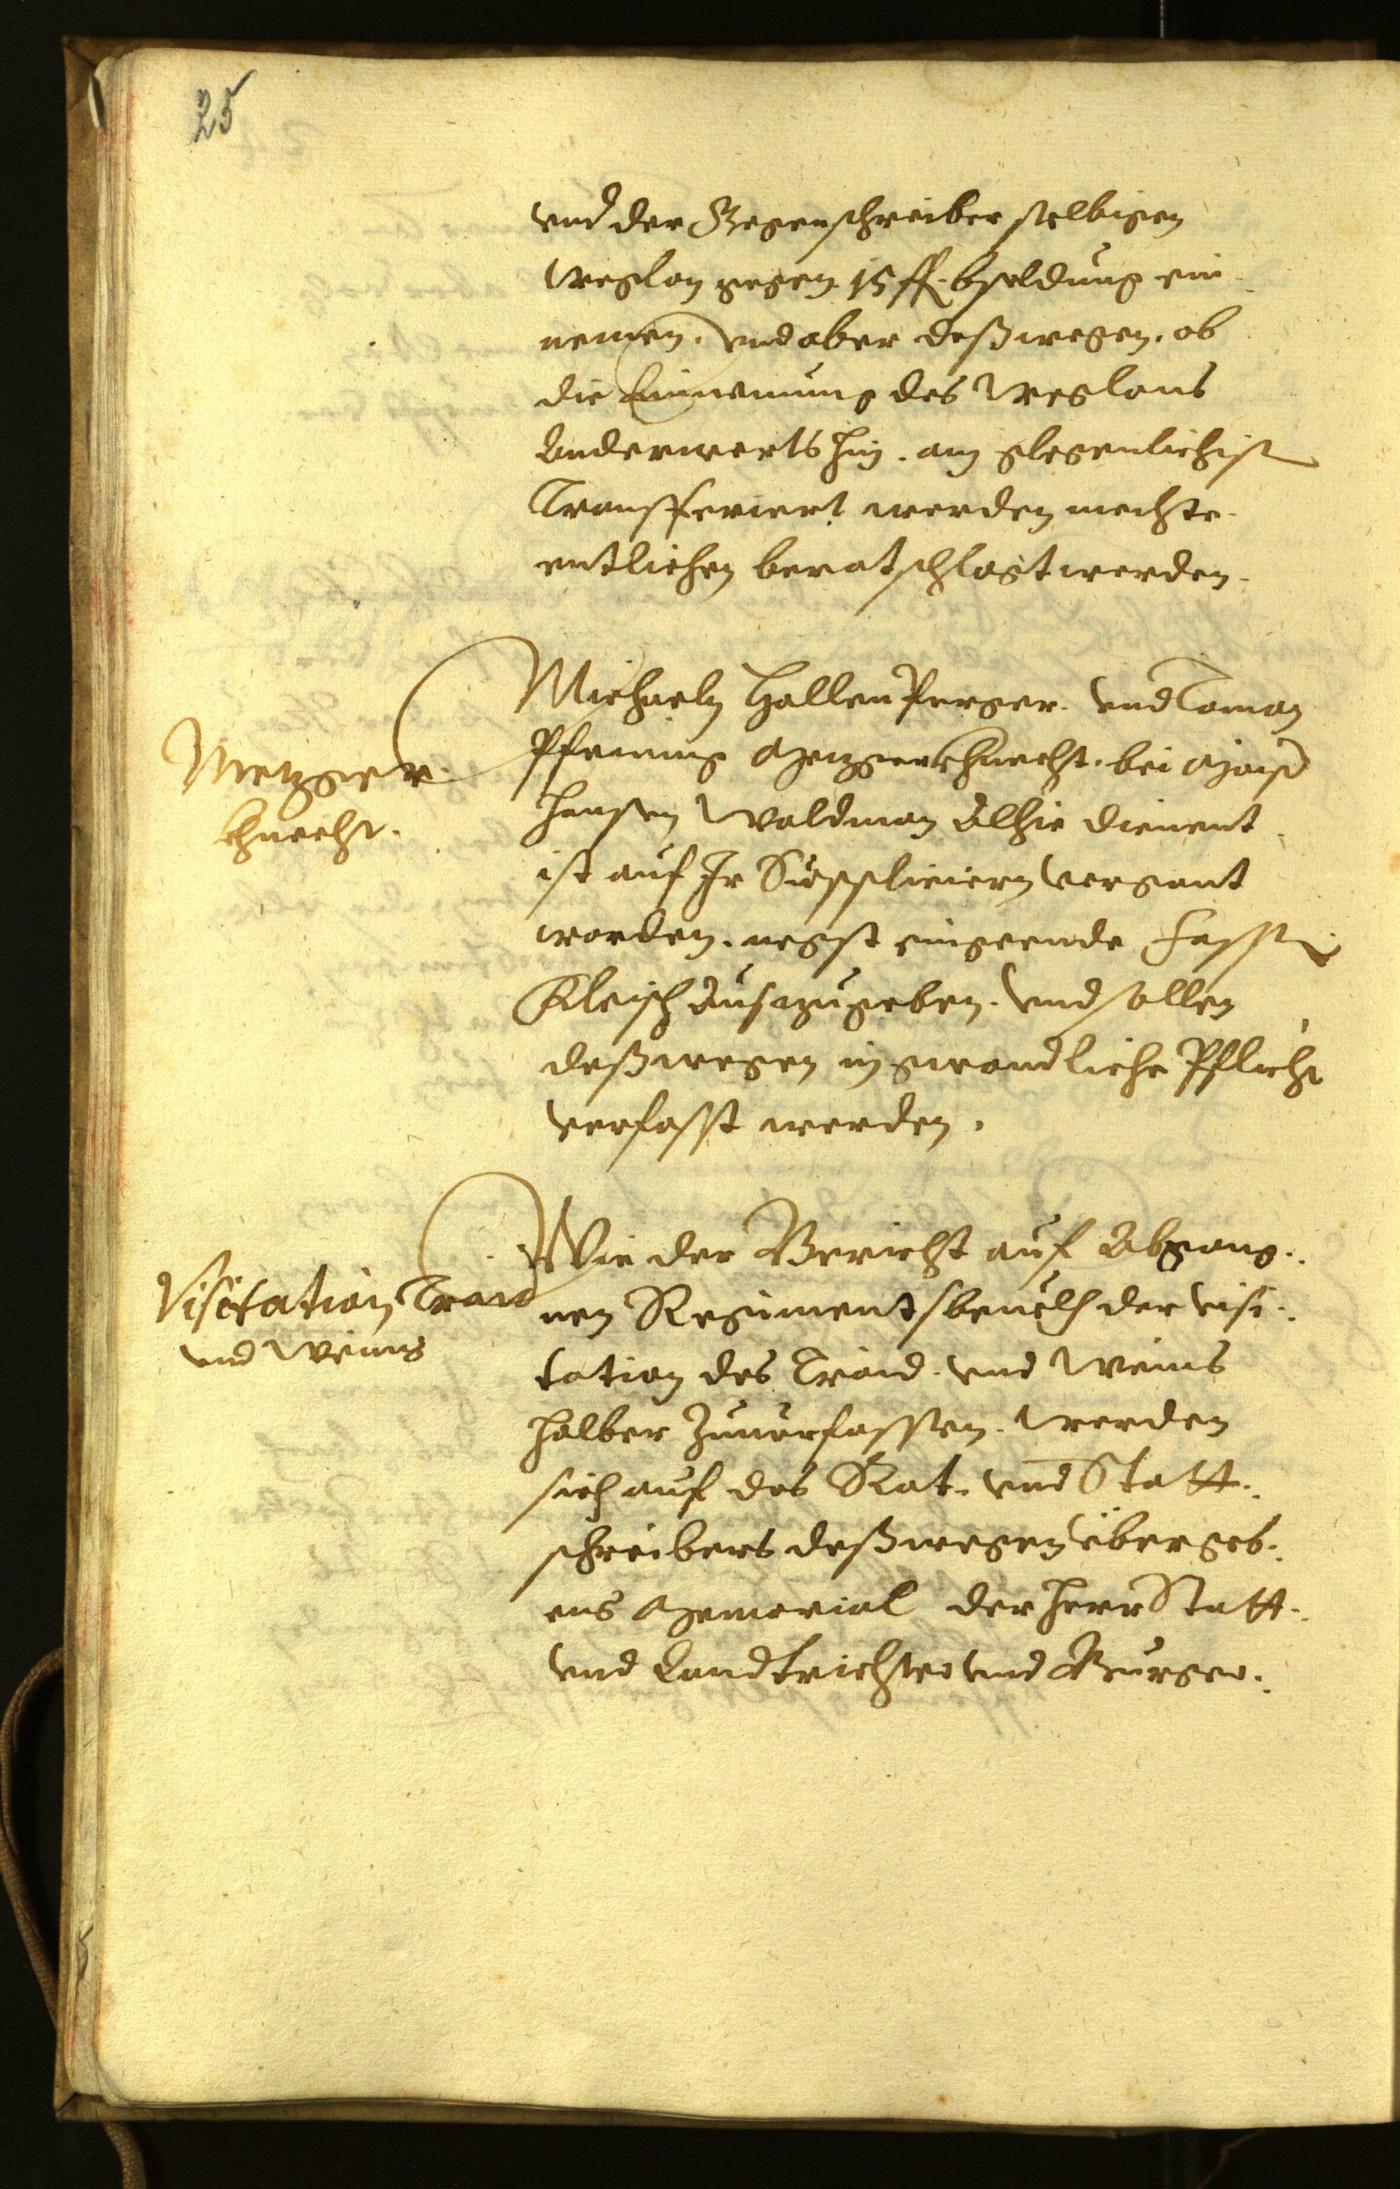 25
und der Gegenschreiber selbigen
Weglon gegen 15 fl. bsoldung ein¬
nemen. und aber deßwegen, ob
die Einnemung des Weglons
Anderwerts hin. am glegenlichist
Transfferiert werden mechte.
entlichen beratschlagt werden.
Metzger
khnecht.
Michaeln HallenPerger. und Toman
Pfening Metzgerkhnecht. bei Maister
Hansen Waldman Alhie dienent
ist auf Ir Supplicieren vergont
worden. negst eingeende Fassten
Fleisch Auszugeben. und sollen
deßwegen in gwondliche Pflicht
verfasst werden.
Visitation Traid
und Weins
Wie der Bericht auf Abgang¬
nen Regimentsbeuelh der visi¬
tation des Traid. und Weins
halber Zuuerfassen. werden
sich auf des Rat. und Statt¬
schreibers deßwegen übergeb¬
ens Memorial der Herr Statt¬
und Landtrichter und Burger¬